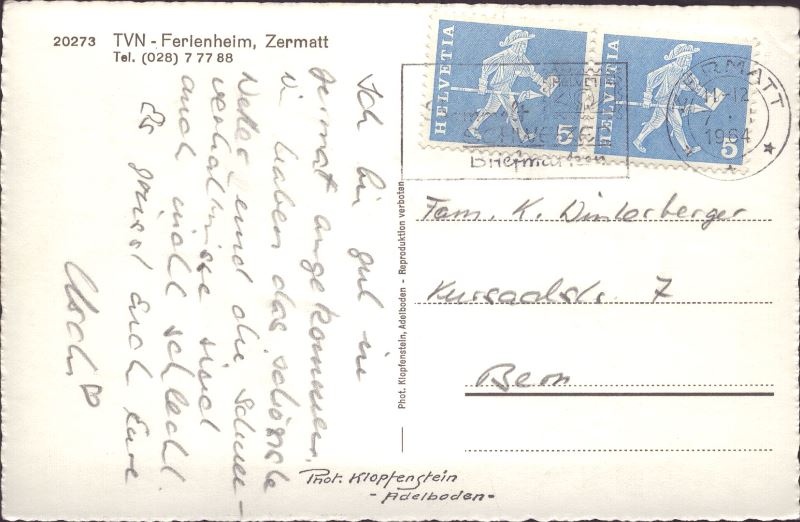 20273 TVN - Ferienheim, Zermatt
Tel. (028) 7 77 88
Ich bin gut in
Zermat angekommen.
Wi haben das schönste
Wetter, und die Schnee-
verhältnisse sind
auch nicht schlecht
Es grüsst Euch Eure
Phot. Klopfenstein, Adelboden - Reproduktion verboten
HELVETIA
5
HELVETIA
5
HELVE
Briefmarken
ZERMATT
11-12
7.
1964
Fam. K. Winterberger
7
Bern
Phot. Klopfenstein
- Adelboden -